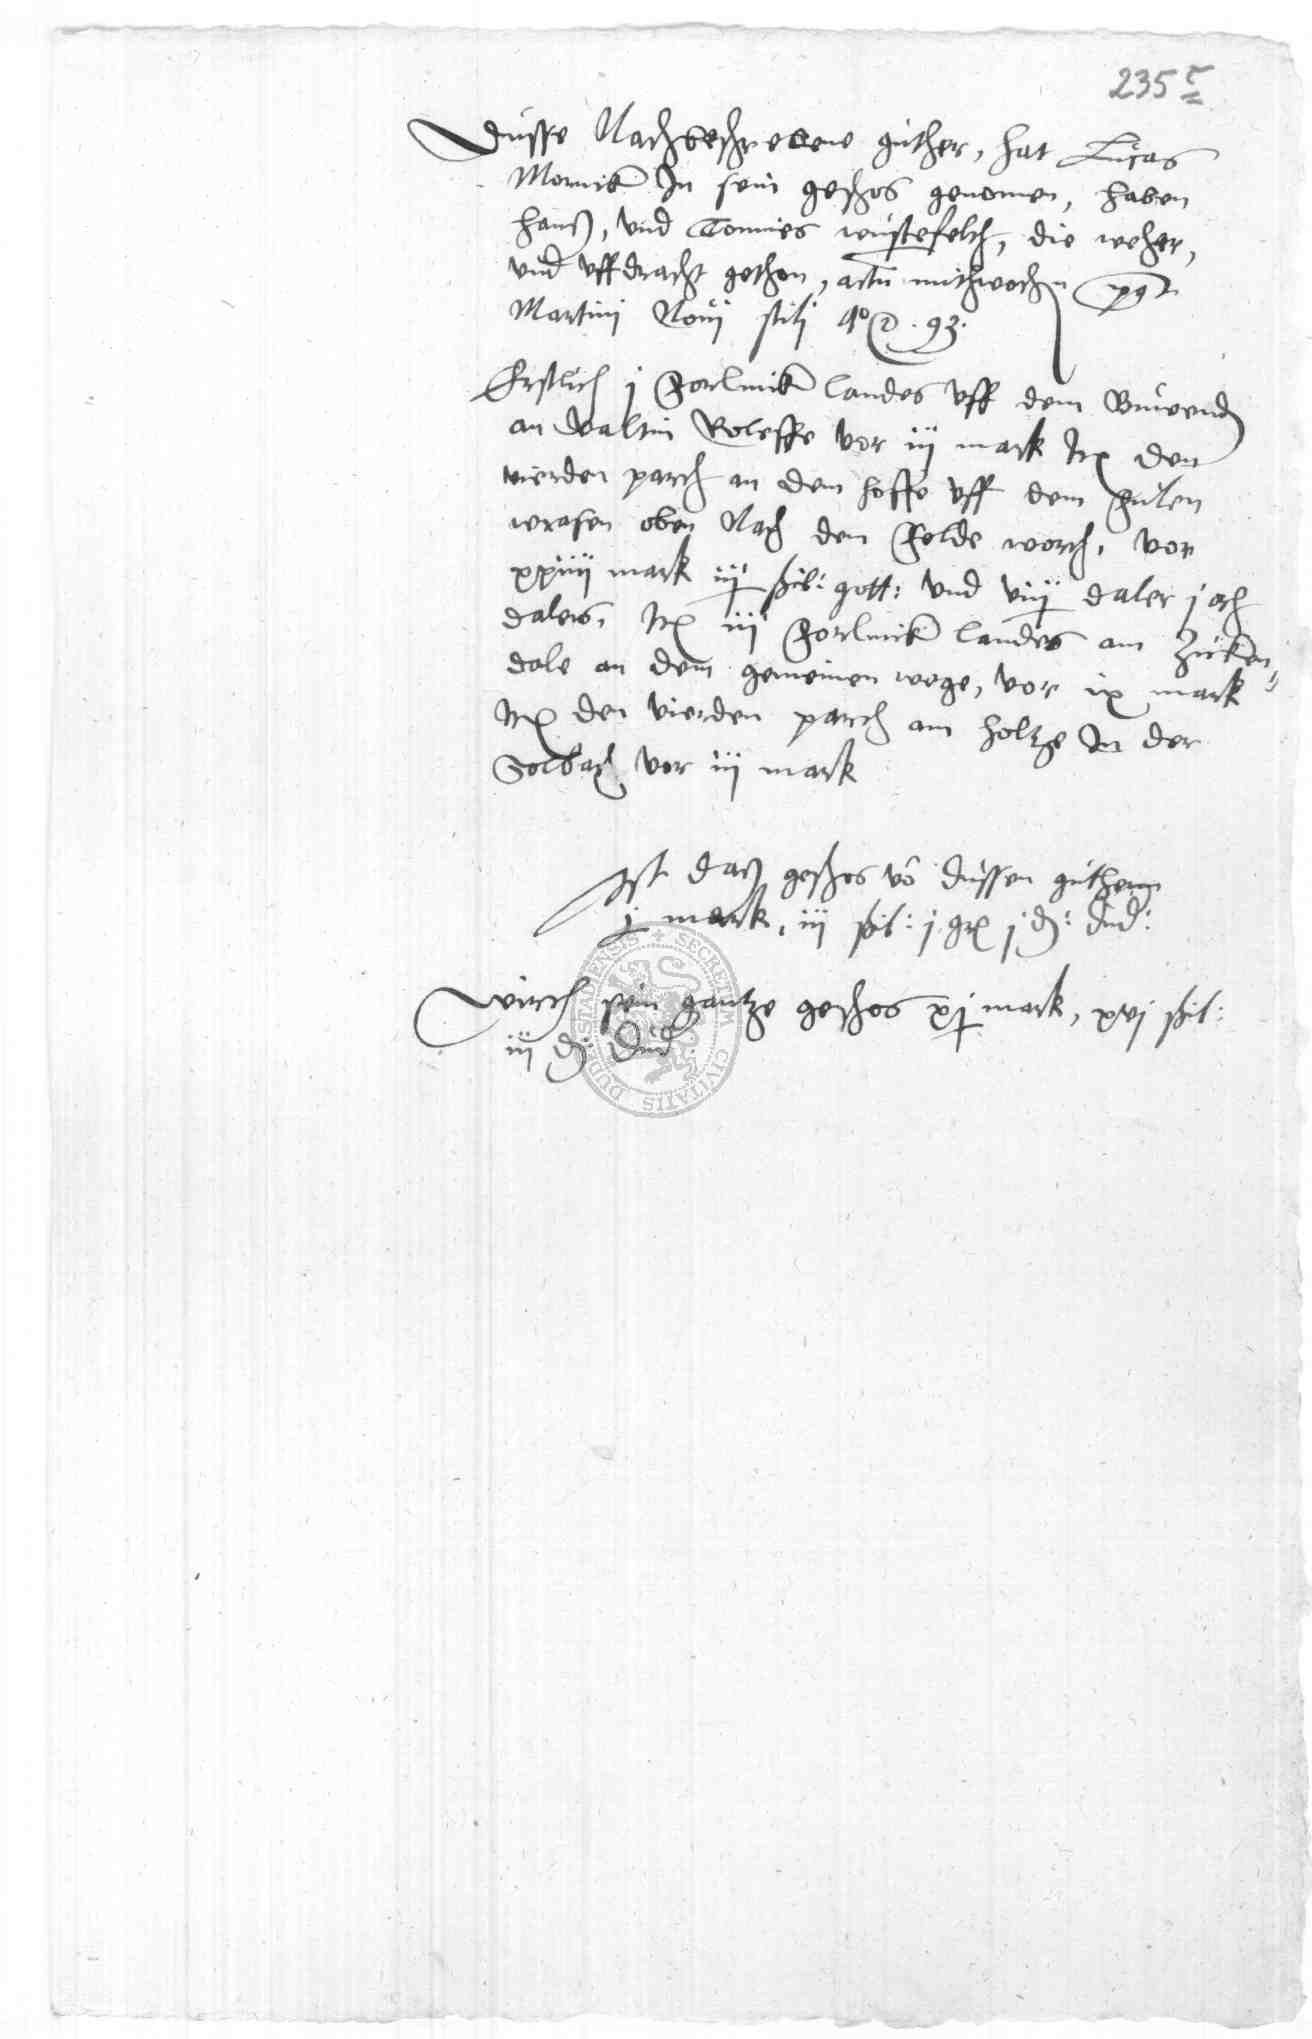 235r
Dusse Nachbeschrebene guther, hat Lucas
In sein geschos genomen, haben
hanß, und Tonnies wustefelth, die weher,
und uffdracht gethan, actu mithwochen post
Martini Novi stili Ao 93.
Erstlich j forlinck landes uff dem
an Valtin Roleffe vor iij mark It den
vierden parth an dem hoffe uff dem fulen
wrasen oben Nach dem felde worth, vor
xxiiij mark iij schil: gott: und viij daler j orth
dalers, It iij forlinck landes am Zicken-
dale an dem gemeinen wege, vor ix mark
It den vierden parth am holtze In der
Solbach vor iij mark
Ist daß geschos vô dussen guthern
j mark, iij schil: j gr j d: Dud:
Wirth sein gantze geschos xj mark, xvj schil:
iij d: Dud:
SECRETUM CIVITATIS DUDERSTADENSIS